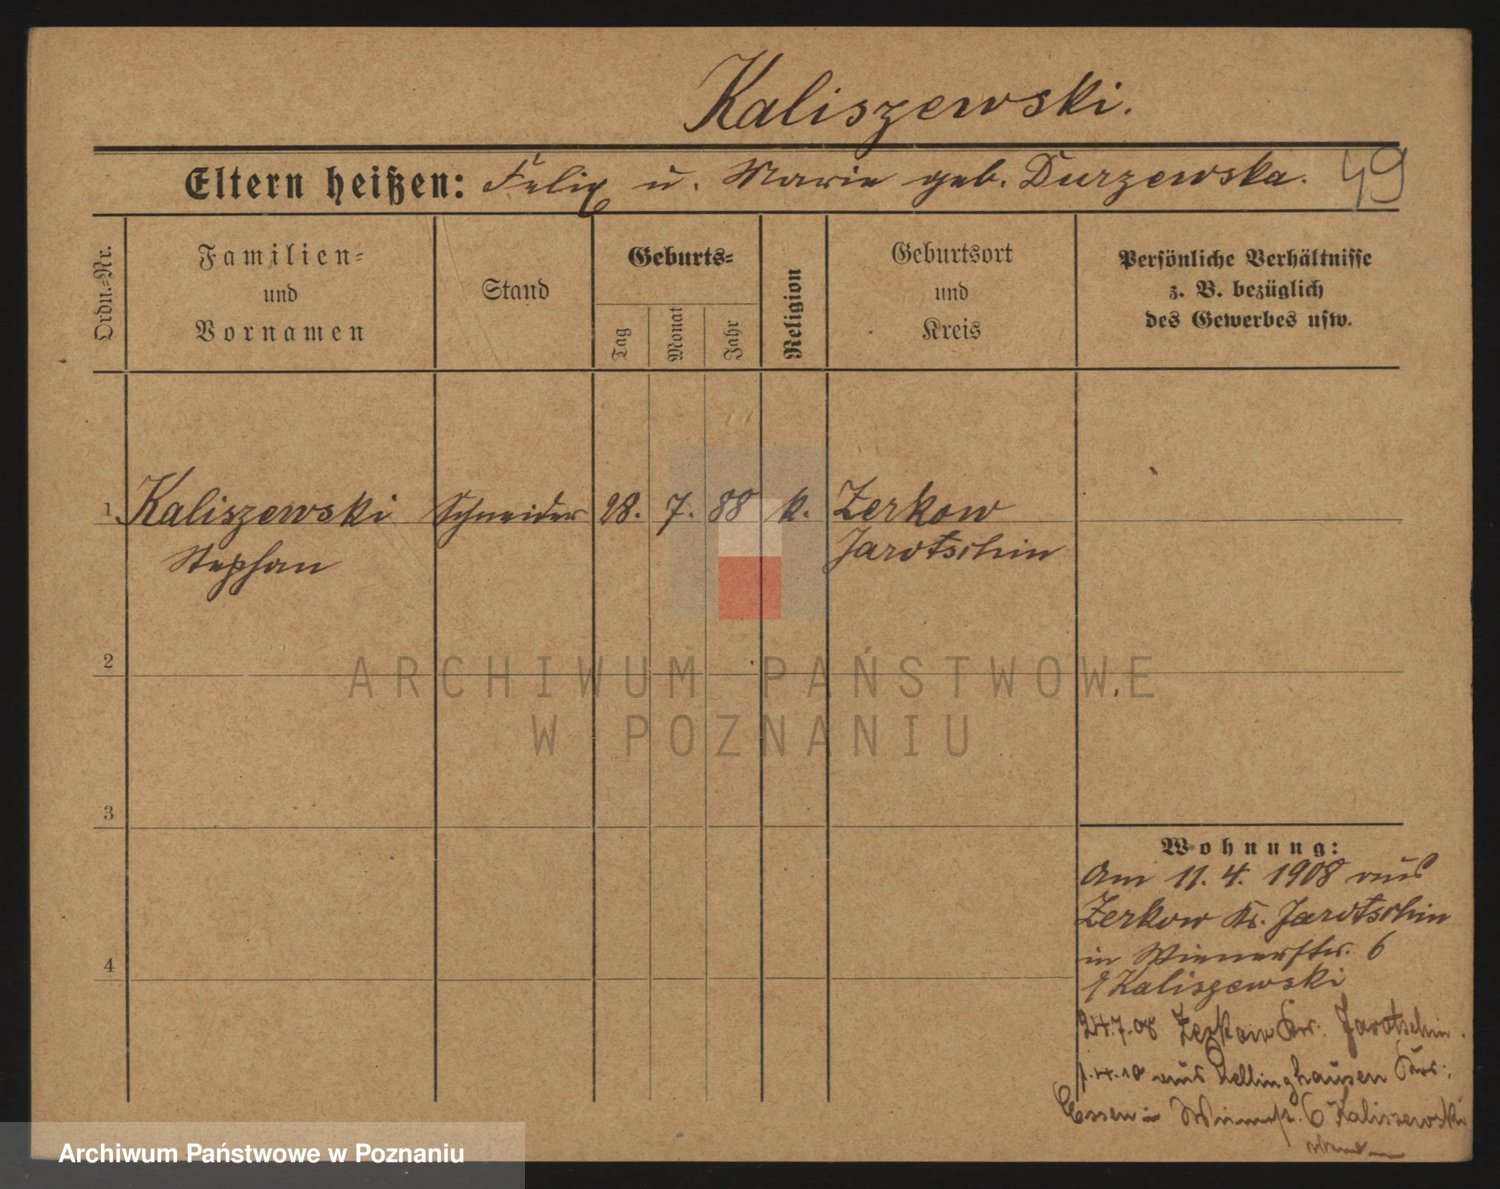 Kaliszewski.
Eltern heißen: Felix u. Marie geb. Durzewska. 49
Ordn.-Nr.
Familien-
und
Vornamen
Stand
Geburts-
Tag
Monat
Jahr
Religion
Geburtsort
und
Kreis
Persönliche Verhältnisse
z. B. bezüglich
des Gewerbes usw.
1 Kaliszewski Schneider 28. 7. 88 k. Zerkow
Stephan Jarotschin
2
ARCHIWUM PAŃSTWOWE
W POZNANIU
3
Wohnung:
Am 11. 4. 1908 aus
Zerkow Kr. Jarotschin
in Wienerstr. 6
Kaliszewski
4
24.7.08 Zerkow Kr. Jarotschin.
1.4.10 aus Rellinghausen
Essen in 6 Kaliszewski
Archiwum Państwowe w Poznaniu